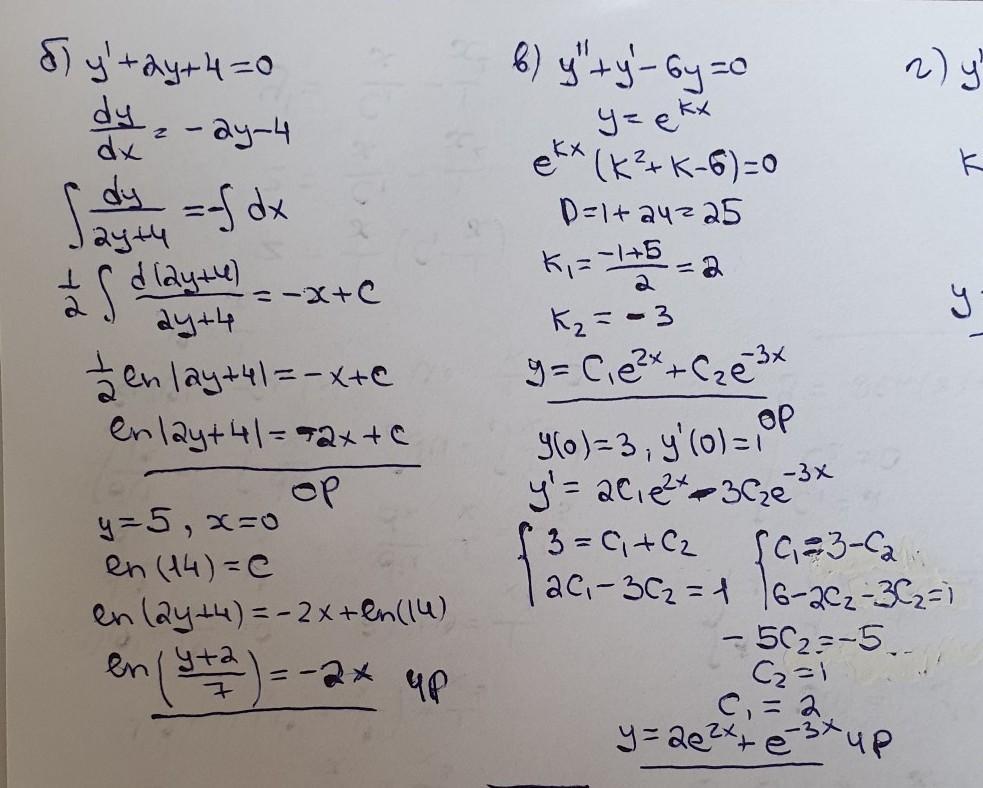 б) y'+2y+4=0
dy/dx = -2y-4
∫ dy/(2y+4) = -∫ dx
1/2 ∫ d(2y+4)/(2y+4) = -x+C
1/2 ln|2y+4| = -x+C
ln|2y+4| = -2x+C
ОР
y=5, x=0
ln(14)=C
ln(2y+4)=-2x+ln(14)
ln((y+2)/7)=-2x ЧР
в) y''+y'-6y=0
y=e^(kx)
e^(kx) (k²+k-6)=0
D=1+24=25
k₁=(-1+5)/2=2
k₂=-3
y=C₁e^(2x)+C₂e^(-3x)
ОР
y(0)=3, y'(0)=1
y'=2C₁e^(2x)-3C₂e^(-3x)
{ 3=C₁+C₂ { C₁=3-C₂
2C₁-3C₂=1 6-2C₂-3C₂=1
-5C₂=-5
C₂=1
C₁=2
y=2e^(2x)+e^(-3x) ЧР
г) y'
k
y